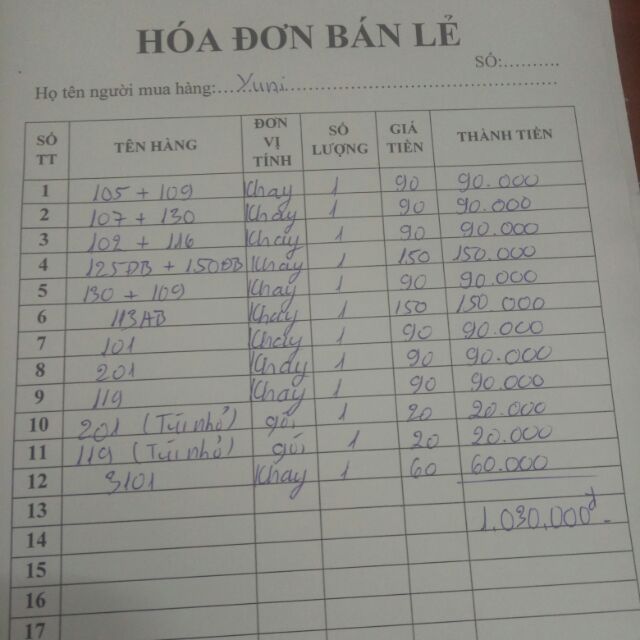 HÓA ĐƠN BÁN LẺ
SỐ:..........
Họ tên người mua hàng:...Yuni...
SỐ TT TÊN HÀNG ĐƠN VỊ TÍNH SỐ LƯỢNG GIÁ TIỀN THÀNH TIỀN
1 105 + 109 Khay 1 90 90.000
2 107 + 130 Khay 1 90 90.000
3 102 + 116 Khay 1 90 90.000
4 125ĐB + 150ĐB Khay 1 150 150.000
5 130 + 109 Khay 1 90 90.000
6 113AB Khay 1 150 150.000
7 101 Khay 1 90 90.000
8 201 Khay 1 90 90.000
9 119 Khay 1 90 90.000
10 201 (Túi nhỏ) gói 1 20 20.000
11 119 (Túi nhỏ) gói 1 20 20.000
12 3101 Khay 1 60 60.000
13 1.030.000đ
14
15
16
17